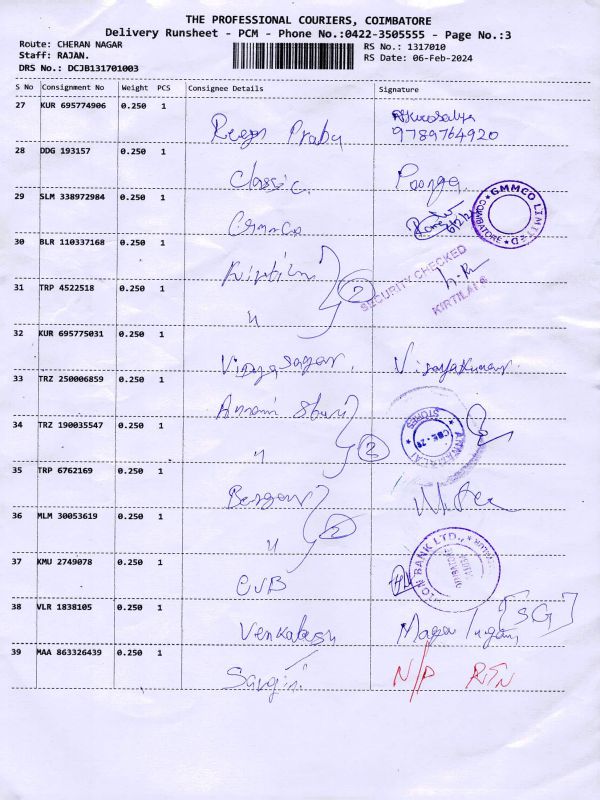 THE PROFESSIONAL COURIERS, COIMBATORE
Delivery Runsheet - PCM - Phone No.:0422-3505555 - Page No.:3
Route: CHERAN NAGAR
RS No.: 1317010
Staff: RAJAN.
RS Date: 06-Feb-2024
DRS No.: DCJB131701003
S No Consignment No Weight PCS Consignee Details Signature
27 KUR 695774906 0.250 1
9789764920
28 DDG 193157 0.250 1
Classic.
29 SLM 338972984 0.250 1
GMMCO LIMITED
COIMBATORE
30 BLR 110337168 0.250 1
SECURITY CHECKED
KIRTILALS
2
31 TRP 4522518 0.250 1
"
32 KUR 695775031 0.250 1
Vidyasagar. Vijayakumar.
33 TRZ 250006859 0.250 1
34 TRZ 190035547 0.250 1
STORES
" 2
35 TRP 6762169 0.250 1
36 MLM 30053619 0.250 1
2
"
37 KMU 2749078 0.250 1
BANK LTD.,
38 VLR 1838105 0.250 1
Venkatesh
[SG]
39 MAA 863326439 0.250 1
N/P RTN